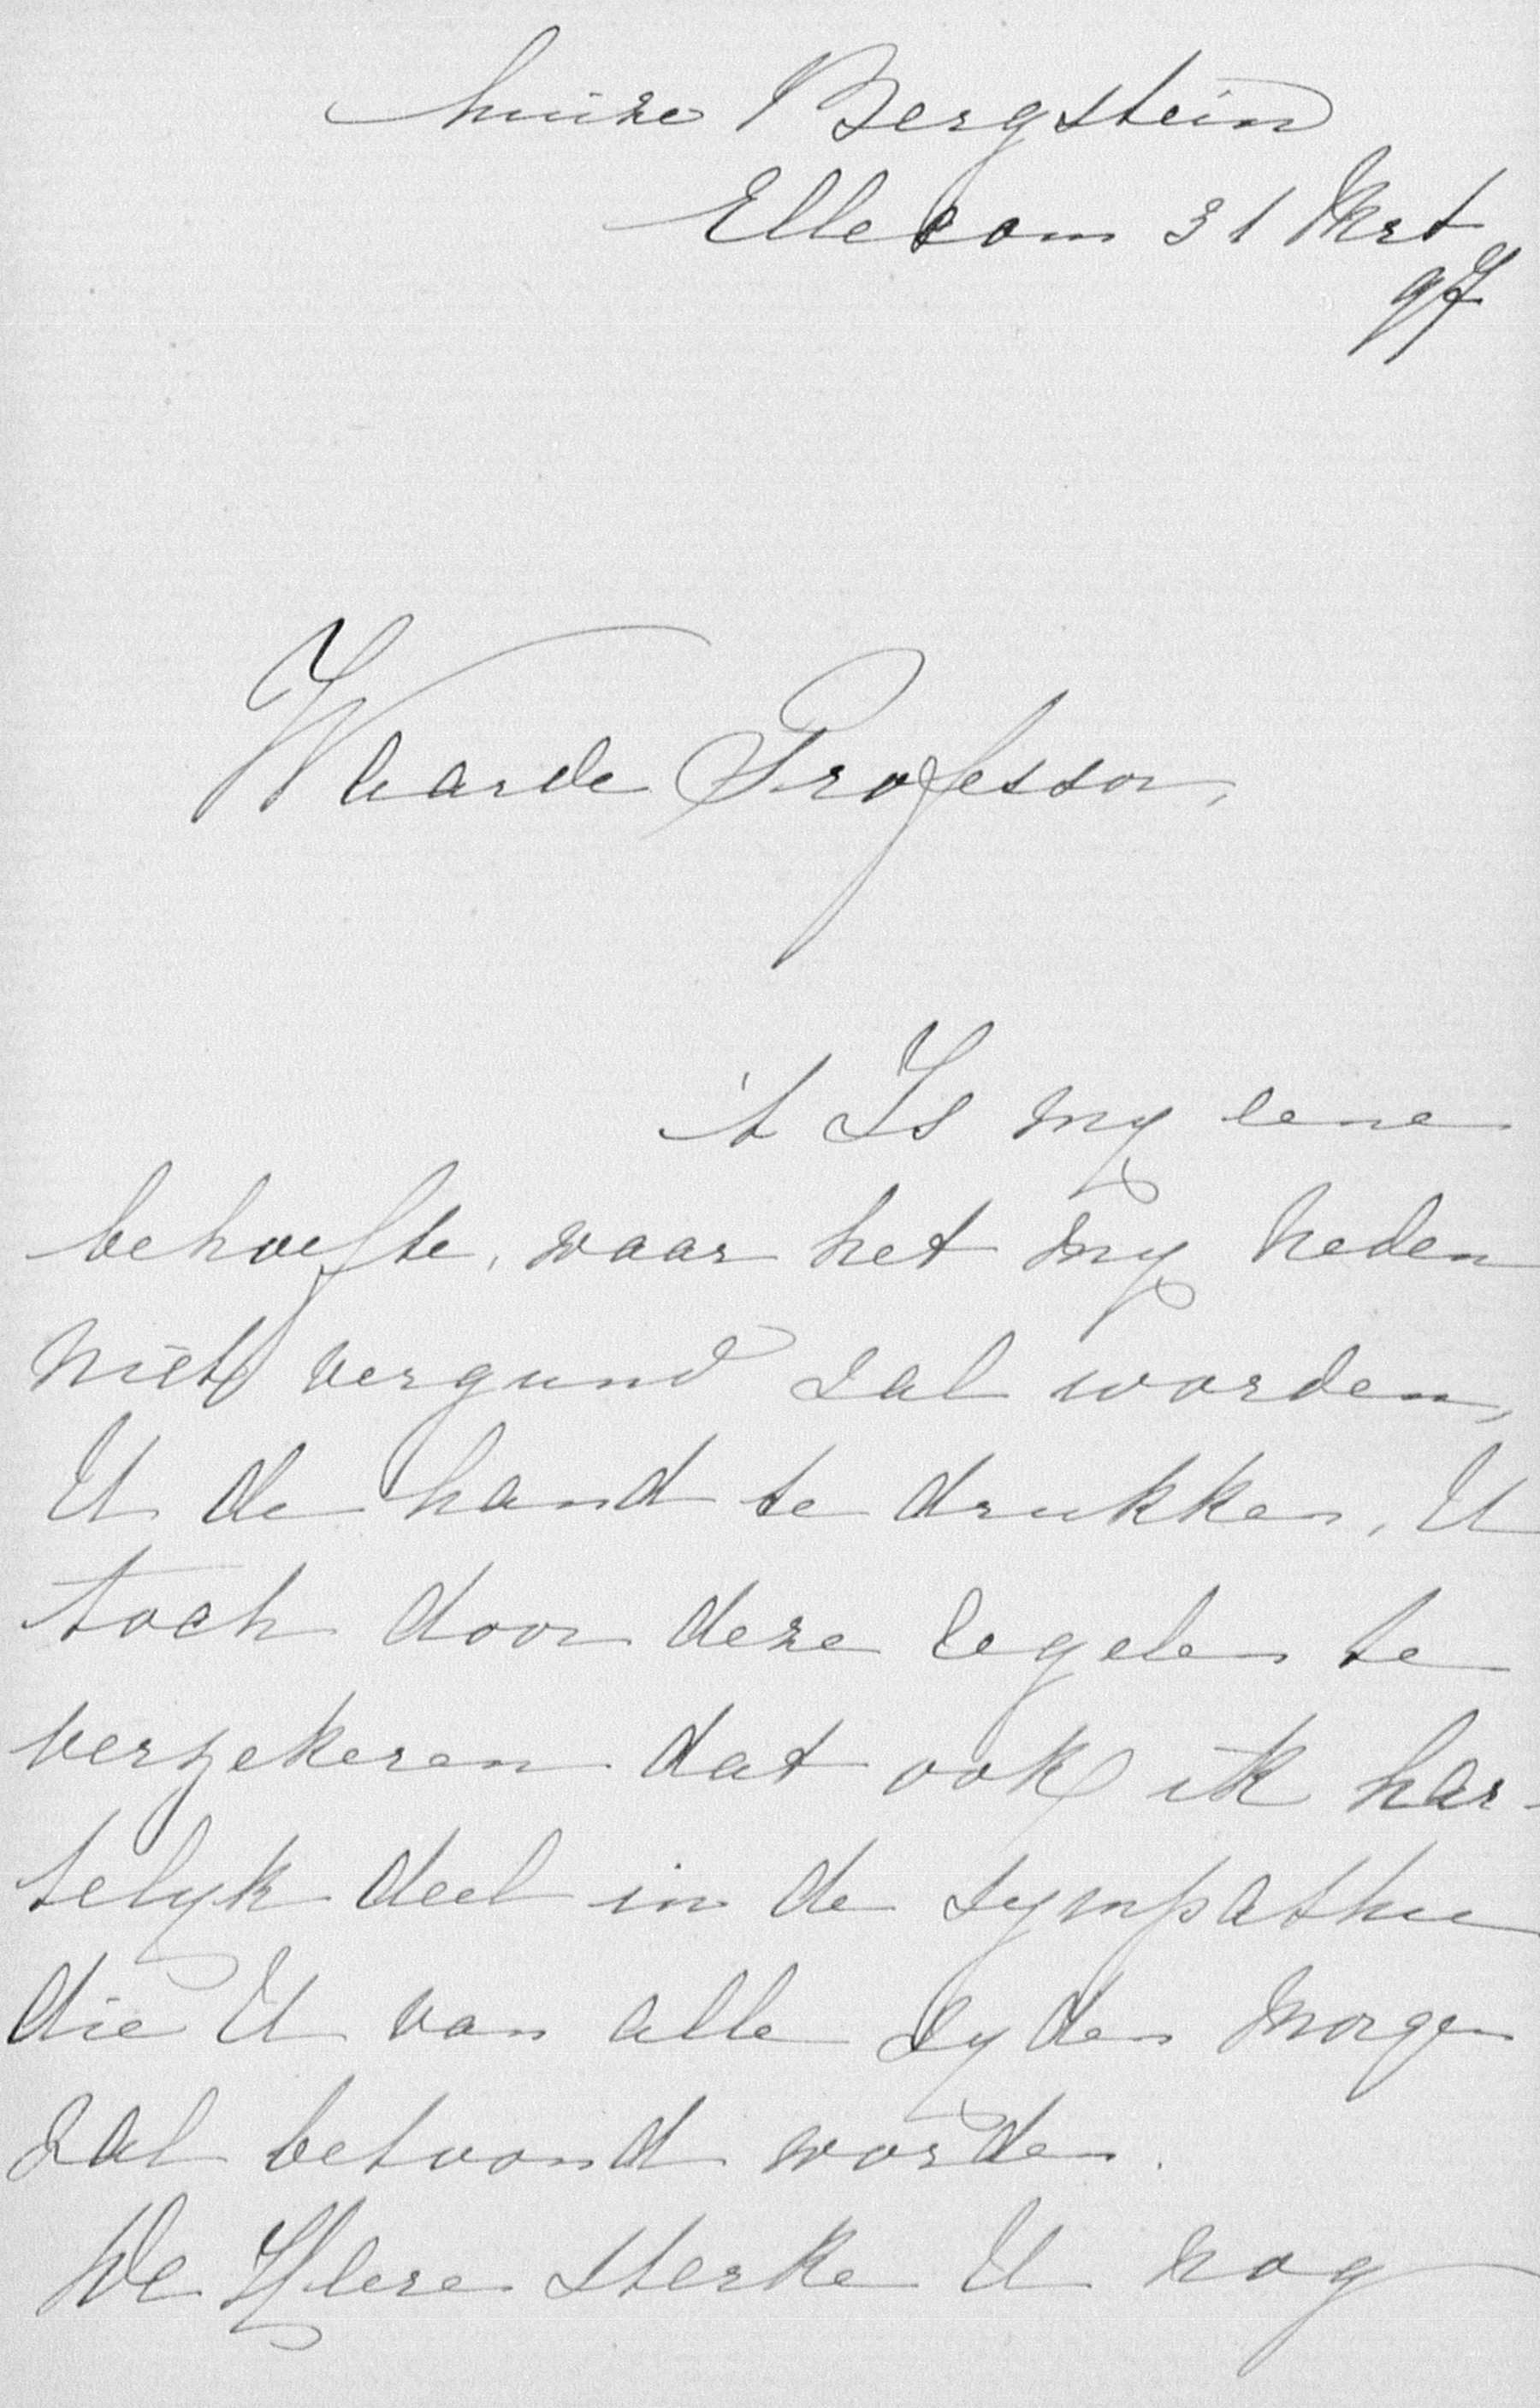 huize Bergstein
Ellecom 31 Mrt
97
Waarde Professor,
't Is my eene
behoefte, waar het my heden
niet vergund zal worden,
U de hand te drukken, U
toch door deze regelen te
verzekeren dat ook ik har-
telyk deel in de sympathie
die U van alle zyden morgen
zal betoond worden.
De Heere sterke U nog